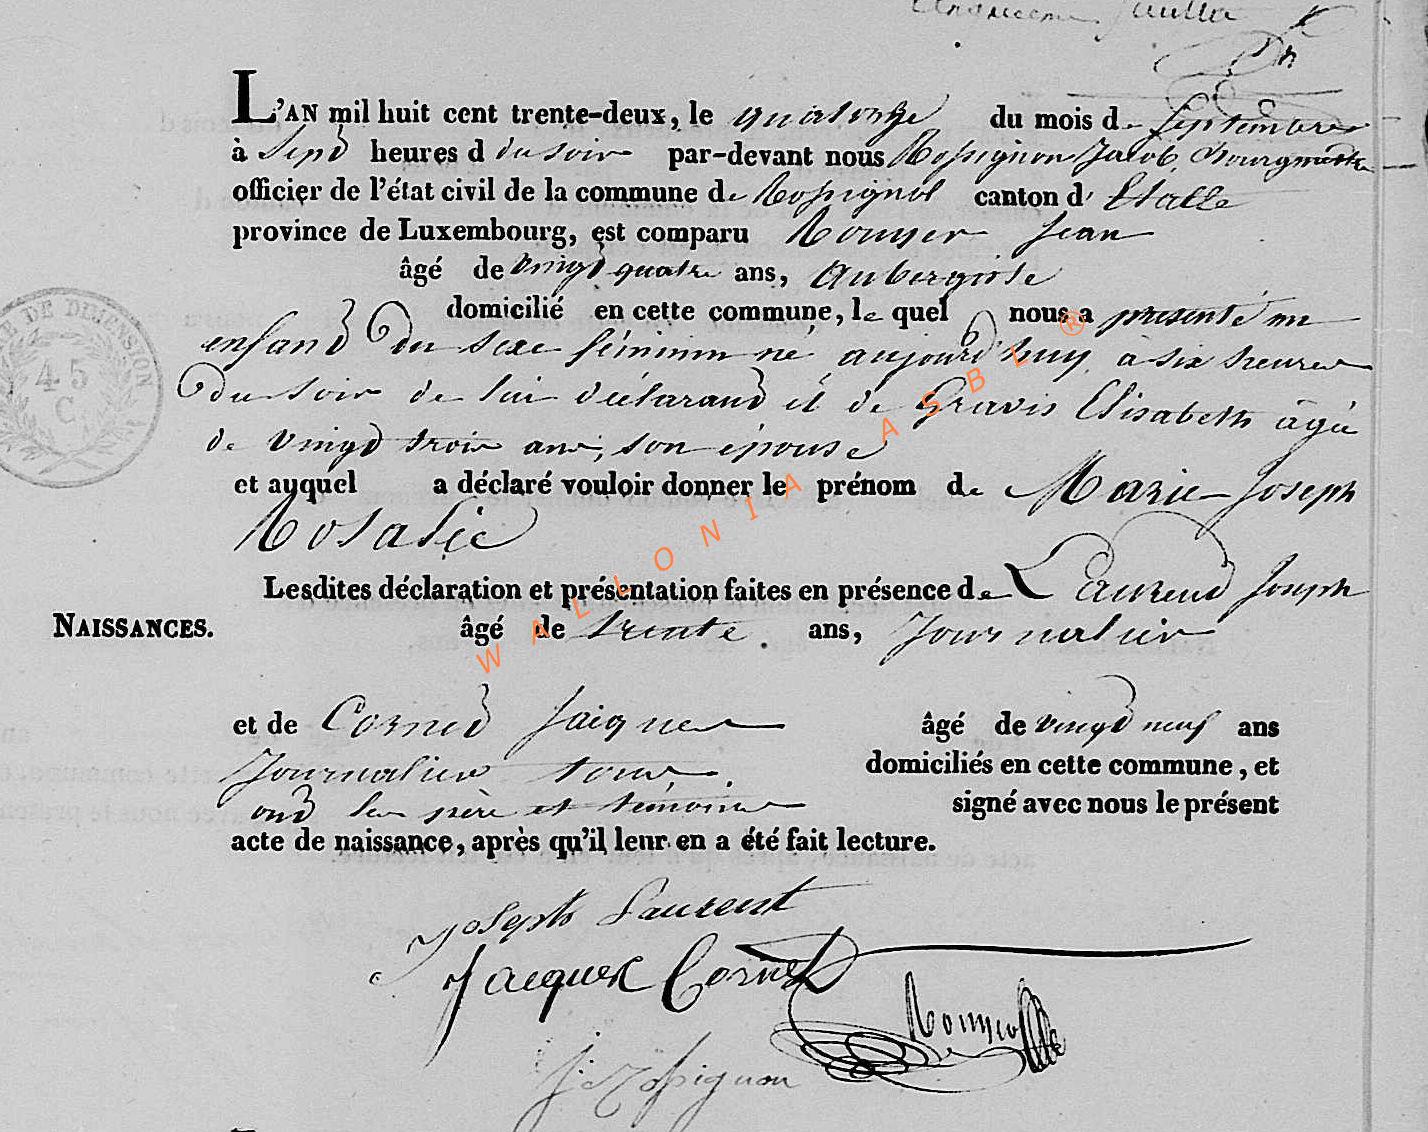 L'AN mil huit cent trente-deux, le quatorze du mois de Septembre
à Sept heures d du soir par-devant nous Rossignon Jacob Bourgmestre
officier de l'état civil de la commune de Rossignol canton d' Etalle
province de Luxembourg, est comparu Rouyer Jean
âgé de vingt quatre ans, Aubergiste
domicilié en cette commune, le quel nous a présenté un
enfant du sexe féminin né aujourd'huy à six heures
du soir de lui déclarant et de Gravis Elisabeth âgée
de vingt trois ans, son épouse
et auquel a déclaré vouloir donner le prénom de Marie Joseph
Rosalie
Lesdites déclaration et présentation faites en présence de Laurent Joseph
NAISSANCES.
âgé de trente ans, Journalier
et de Cornet Jaques âgé de vingt neuf ans
Journalier tous domiciliés en cette commune, et
ont les père et témoins signé avec nous le présent
acte de naissance, après qu'il leur en a été fait lecture.
Joseph Laurent
Jacques Cornet
Rouyer
J. Rossignon
DE DIMENSION
45
C.
WALLONIA ASBL ®